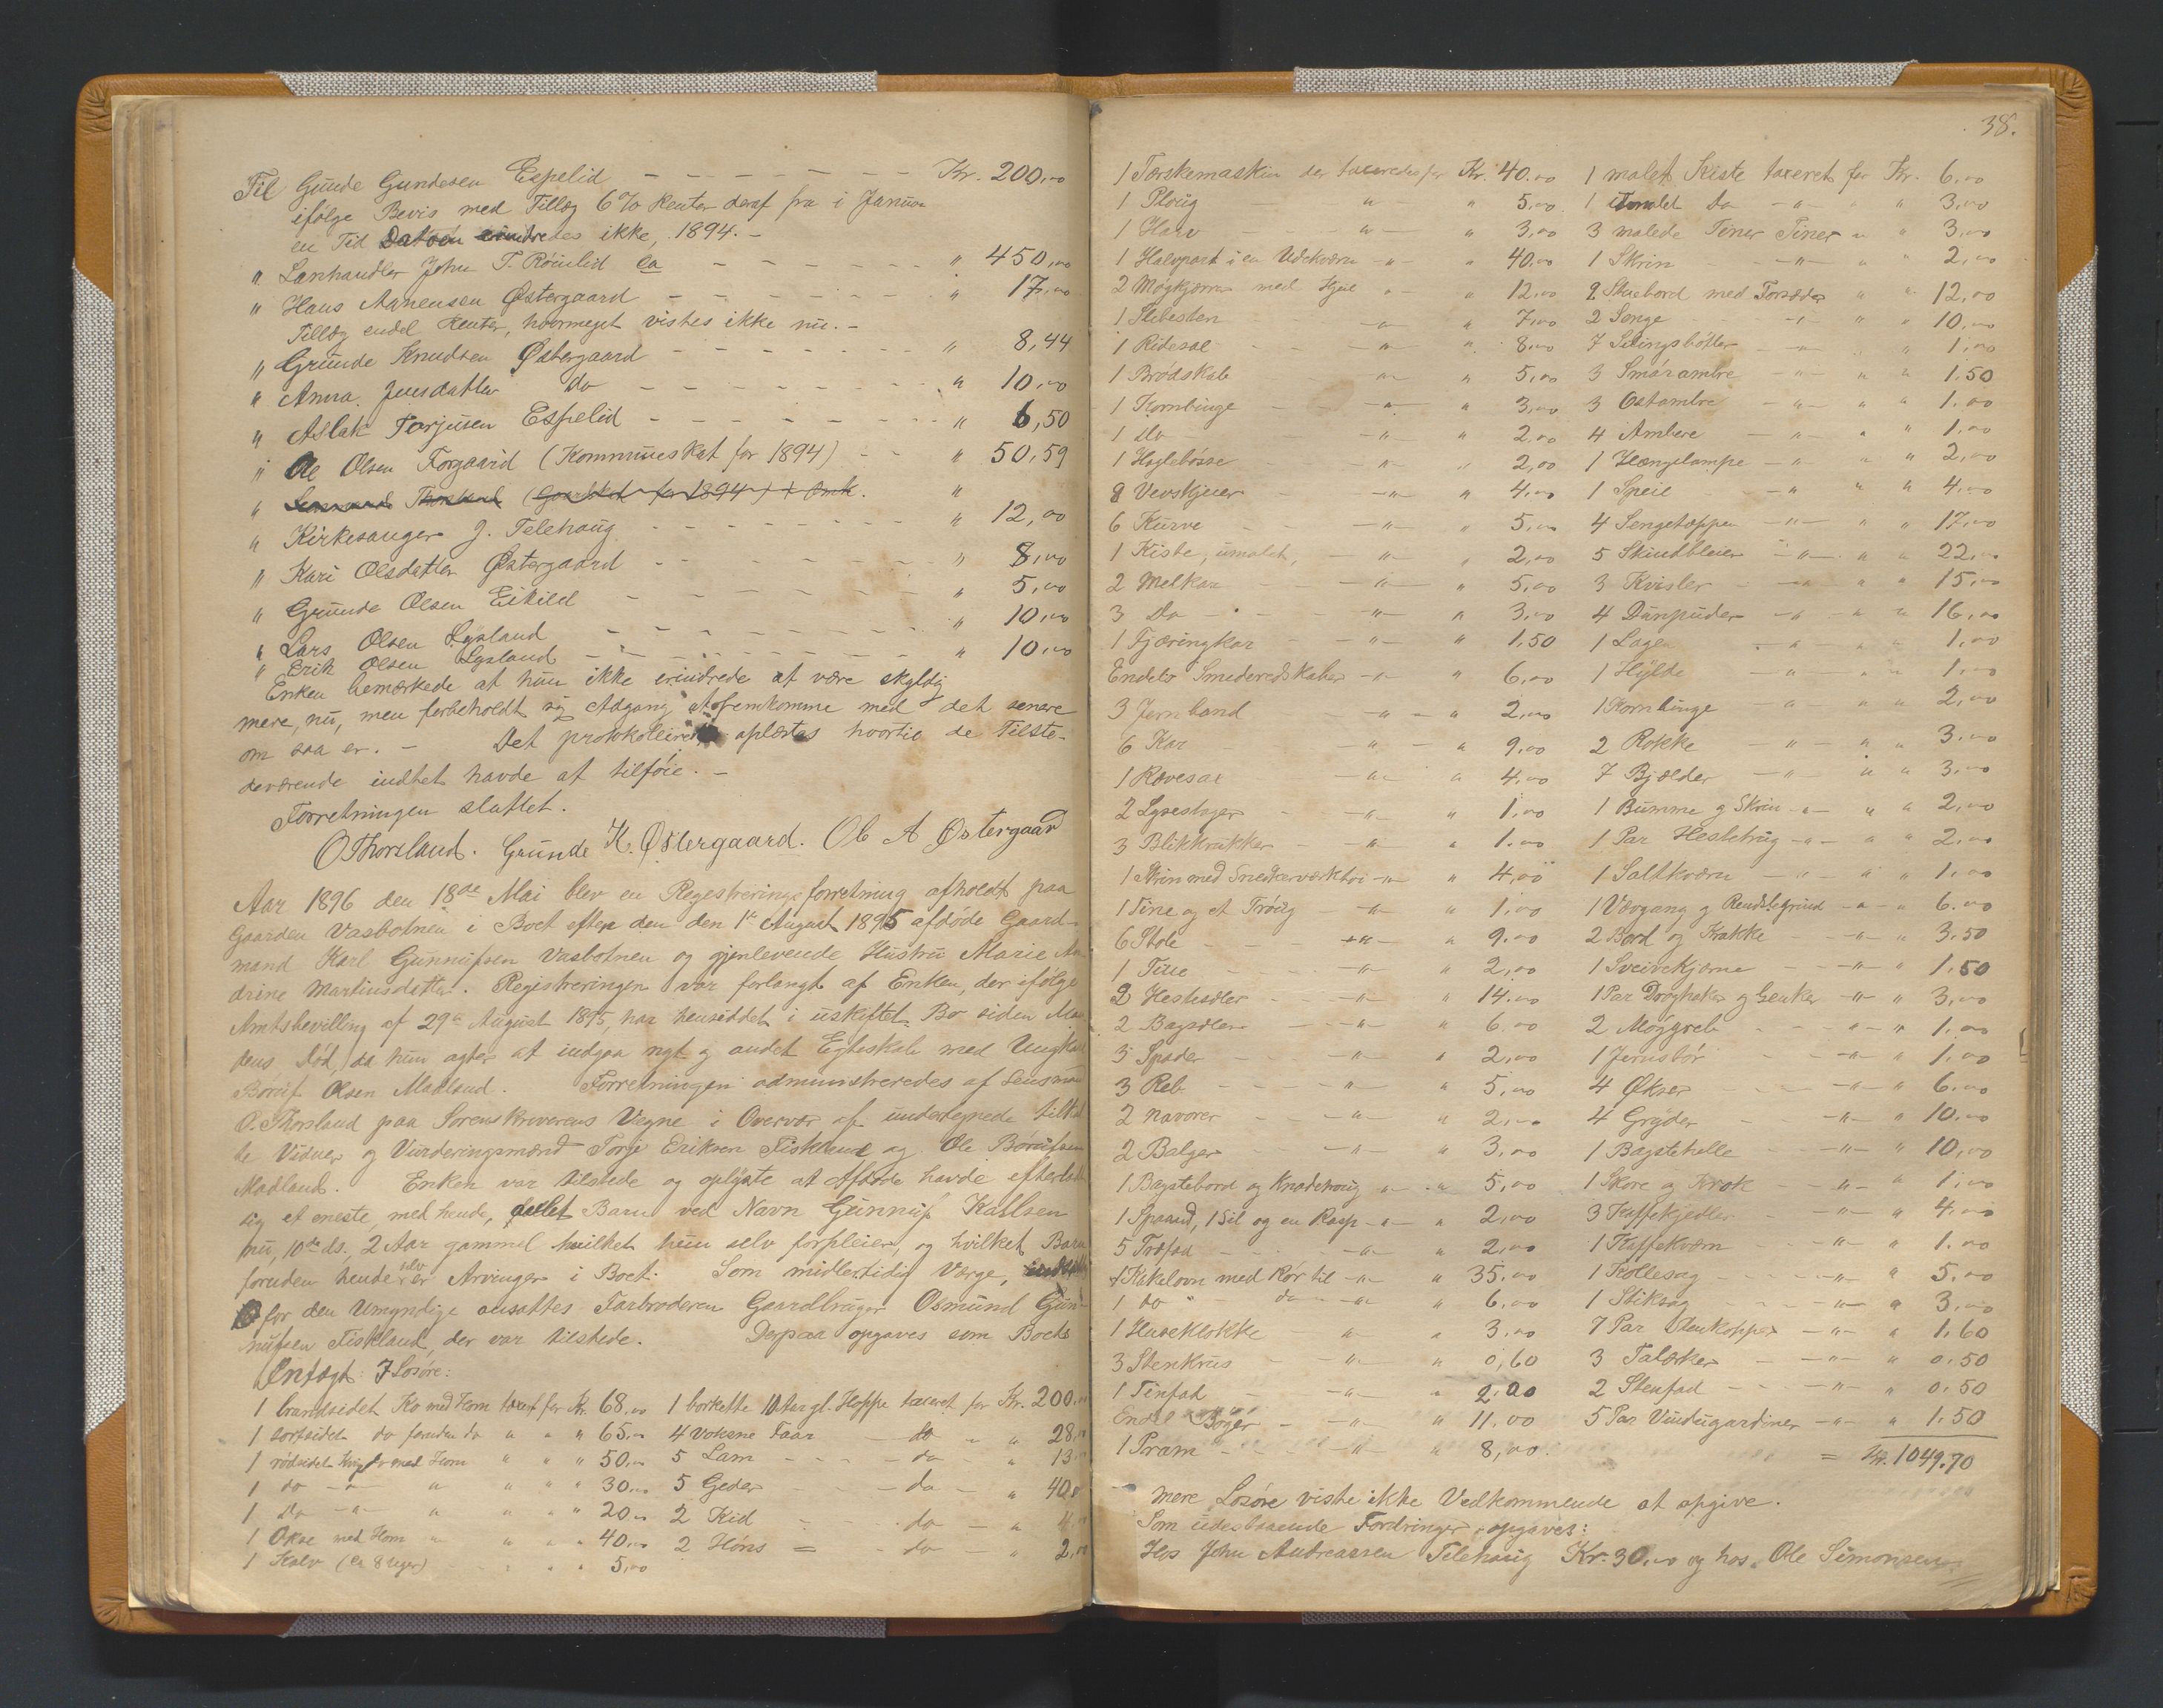 Til Gunde Gundesen Espelid - - - - - - - Kr. 200,00
ifølge Bevis med Tillæg 6% Renter deraf fra i Januar
en Tid Datoen erindredes ikke, 1894. -
" Lanhandler John T. Röinlid ca - - - - - - " 450,00
" Hans Aanensen Østergaard - - - - - - - " 17,00
Tillæg endel Renter, hvormeget vistes ikke nu. -
" Grunde Knudsen Østergaard - - - - - - " 8,44
" Anna Jensdatter do - - - - - - - " 10,00
" Aslak Torjusen Espelid - - - - - - - " 6,50
" Ole Olsen Torgaard (Kommuneskat for 1894) - - " 50,59
" Lensmand Thorsland (Gaardskat for 1894) + Omk. "
" Kirkesanger J. Telehaug - - - - - - - " 12,00
" Kari Olsdatter Østergaard - - - - - - - " 8,00
" Grunde Olsen Eikild - - - - - - - " 5,00
" Lars Olsen Lysland - - - - - - - " 10,00
" Erik Olsen Lysland - - - - - - - " 10,00
Enken bemærkede at hun ikke erindrede at være skyldig
mere, nu, men forbeholdt sig Adgang at fremkomme med det senere
om saa er. - Det protokollerede oplæstes hvortil de Tilste-
deværende indtet havde at tilføie. -
Forretningen sluttet.
O Thorsland. Grunde K. Østergaard. Ole A Østergaard
Aar 1896 den 18de Mai blev en Registreringsforretning afholdt paa
Gaarden Vasbotnen i Boet efter den den 1te August 1895 afdøde Gaard-
mand Karl Gunnufsen Vasbotnen og gjenlevende Hustru Marie An
drine Martinsdatter. Registreringen var forlangt af Enken, der ifølge
Amtsbevilling af 29de August 1895, har hensiddet i uskiftet Bo siden Man
dens Død, da hun agter at indgaa nyt og andet Egteskab med Ungkarl
Børuf Olsen Madland. Forretningen administreredes af Lensmand
O. Thorsland paa Sorenskriverens Vegne i Overvær af undertegnede tilkal
te Vidner og Vurderingsmænd Torje Eriksen Fiskland og Ole Børufsen
Madland. Enken var tilstede og oplyste at Afdøde havde efterladt
sig et eneste, med hende, avlet Barn ved Navn Gunnuf Karlsen
nu, 10de ds. 2 Aar gammel hvilket hun selv forpleier, og hvilket Barn
foruden hende selv er Arvinger i Boet. Som midlertidig Værge,
for den Umyndige ansattes Farbroderen Gaardbruger Osmund Gun-
nufsen Fiskland, der var tilstede. Derpaa opgaves som Boets
Indtægt: I Løsøre:
1 brandsidet Ko med Horn taxeret for Kr. 68,00 1 borkette 10 Aar gl. Hoppe taxeret for Kr. 200,00
1 sortsidet do foruden do " " " 65,00 4 voksne Faar - do - " 28,00
1 rødsidet Kvige med Horn " " " 50,00 5 Lam - - - do - " 13,00
1 do - " - " " " 30,00 5 Geder - - do - " 40,00
1 Do - " - " " " 20,00 2 Kid - - do - " 4,00
1 Okse med Horn " " " 40,00 2 Høns = - do - " 2,00
1 Kalv (ca 8 Uger) - - " " 5,00
38.
1 Tærskemaskin der taxeredes for Kr. 40,00 1 malet Kiste taxeret for Kr. 6,00
1 Ploug " " 5,00 1 umalet do - " - " " 3,00
1 Harv " " 3,00 3 malede Tiner Tiner " " 3,00
1 Halvpart i en Udekværn - " - " 40,00 1 Skrin - " - " " 2,00
2 Møgkjærrer med Hjul " - " 12,00 2 Stuebord med Forsæder " " 12,00
1 Slibesten - " - " 7,00 2 Senge - " - " " 10,00
1 Ridesal - " - " 8,00 7 Silingsbøtter - " - " " 1,00
1 Brødskab - " - " 5,00 3 Smørambre - " - " " 1,50
1 Kornbinge - " - " 3,00 3 Ostambre - " - " " 1,00
1 do - " - " 2,00 4 Ambere - " - " " 1,00
1 Haglebøsse - " - " 2,00 1 Hængelampe - " - " " 2,00
8 Vevskjeier - " - " 4,00 1 Speil - " " " 4,00
6 Kurve - " - " 5,00 4 Sengetæpper - " - " " 17,00
1 Kiste, umalet, - " - " 2,00 5 Skindbleier - " - " " 22,00
2 Melkar - " - " 5,00 3 Kvisler - " " " 15,00
3 Do - - " - " 3,00 4 Dunpuder - " - " " 16,00
1 Tjæringkar - " - " 1,50 1 Lagen - " " " 1,00
Endel Smederedskaber - " - " 6,00 1 Hylde - " - " " 1,00
3 Jernbaand - " - " 2,00 1 Kornbinge - " - " " 2,00
6 Kar - " - " 9,00 2 Rokke - " - " " 3,00
1 Rævesax - " - " 4,00 7 Bjælder - " - " " 3,00
2 Lysestager - " - " 1,00 1 Bumme og Skrin - " - " " 2,00
3 Blikkrukker - " - " 1,00 1 Par Hestetrug - " - " " 2,00
1 Skrin med Snedkerværktøi - " - " 4,00 1 Saltkværn - " - " " 1,00
1 Tine og et Traug - " - " 1,00 1 Vævgang og Rendslegrind - " - " 6,00
6 Stole - " - " 9,00 2 Bord og Krakke - " - " 3,50
1 Tine - " - " 2,00 1 Sveivekjærne - " - " 1,50
2 Hestesæler - " - " 14,00 1 Par Droghaker og Lenker - " - " 3,00
2 Bagsæler - " - " 6,00 2 Møggreb - " - " 1,00
3 Spader - " - " 2,00 1 Jernstør - " - " 1,00
3 Reb - " - " 5,00 4 Økser - " - " 6,00
2 Navarer - " - " 2,00 4 Gryder - " - " 10,00
2 Balger - " - " 3,00 1 Bagstehelle - " - " 10,00
1 Bagstebord og Knadetroug " - " 5,00 1 Skore og Krok - " - " 1,00
1 Spaand, 1 Sil og en Rasp - " - " 2,00 3 Kaffekjedler - " - " 4,00
5 Træfad - " - " 2,00 1 Kaffekværn - " - " 1,00
1 Kakelovn med Rør til - " - " 35,00 1 Kollesag - " - " 5,00
1 do " do - " - " 6,00 1 Stiksag - " - " 3,00
1 Huseklokke " - " 3,00 7 Par Stenkopper - " - " 1,60
3 Stenkrus - " - " 0,60 3 Talærker - " - " 0,50
1 Tinfad - " - " 2,00 2 Stenfad - " - " 0,50
Endel Bøger - " - " 11,00 5 Par Vindugardiner - " - " 1,50
1 Pram - " - " 8,00. = Kr. 1049,70
mere Løsøre viste ikke Vedkommende at opgive.
Som udestaaende Fordringer opgaves:
Hos John Andreassen Telehaug Kr. 30,00 og hos Ole Simonsen